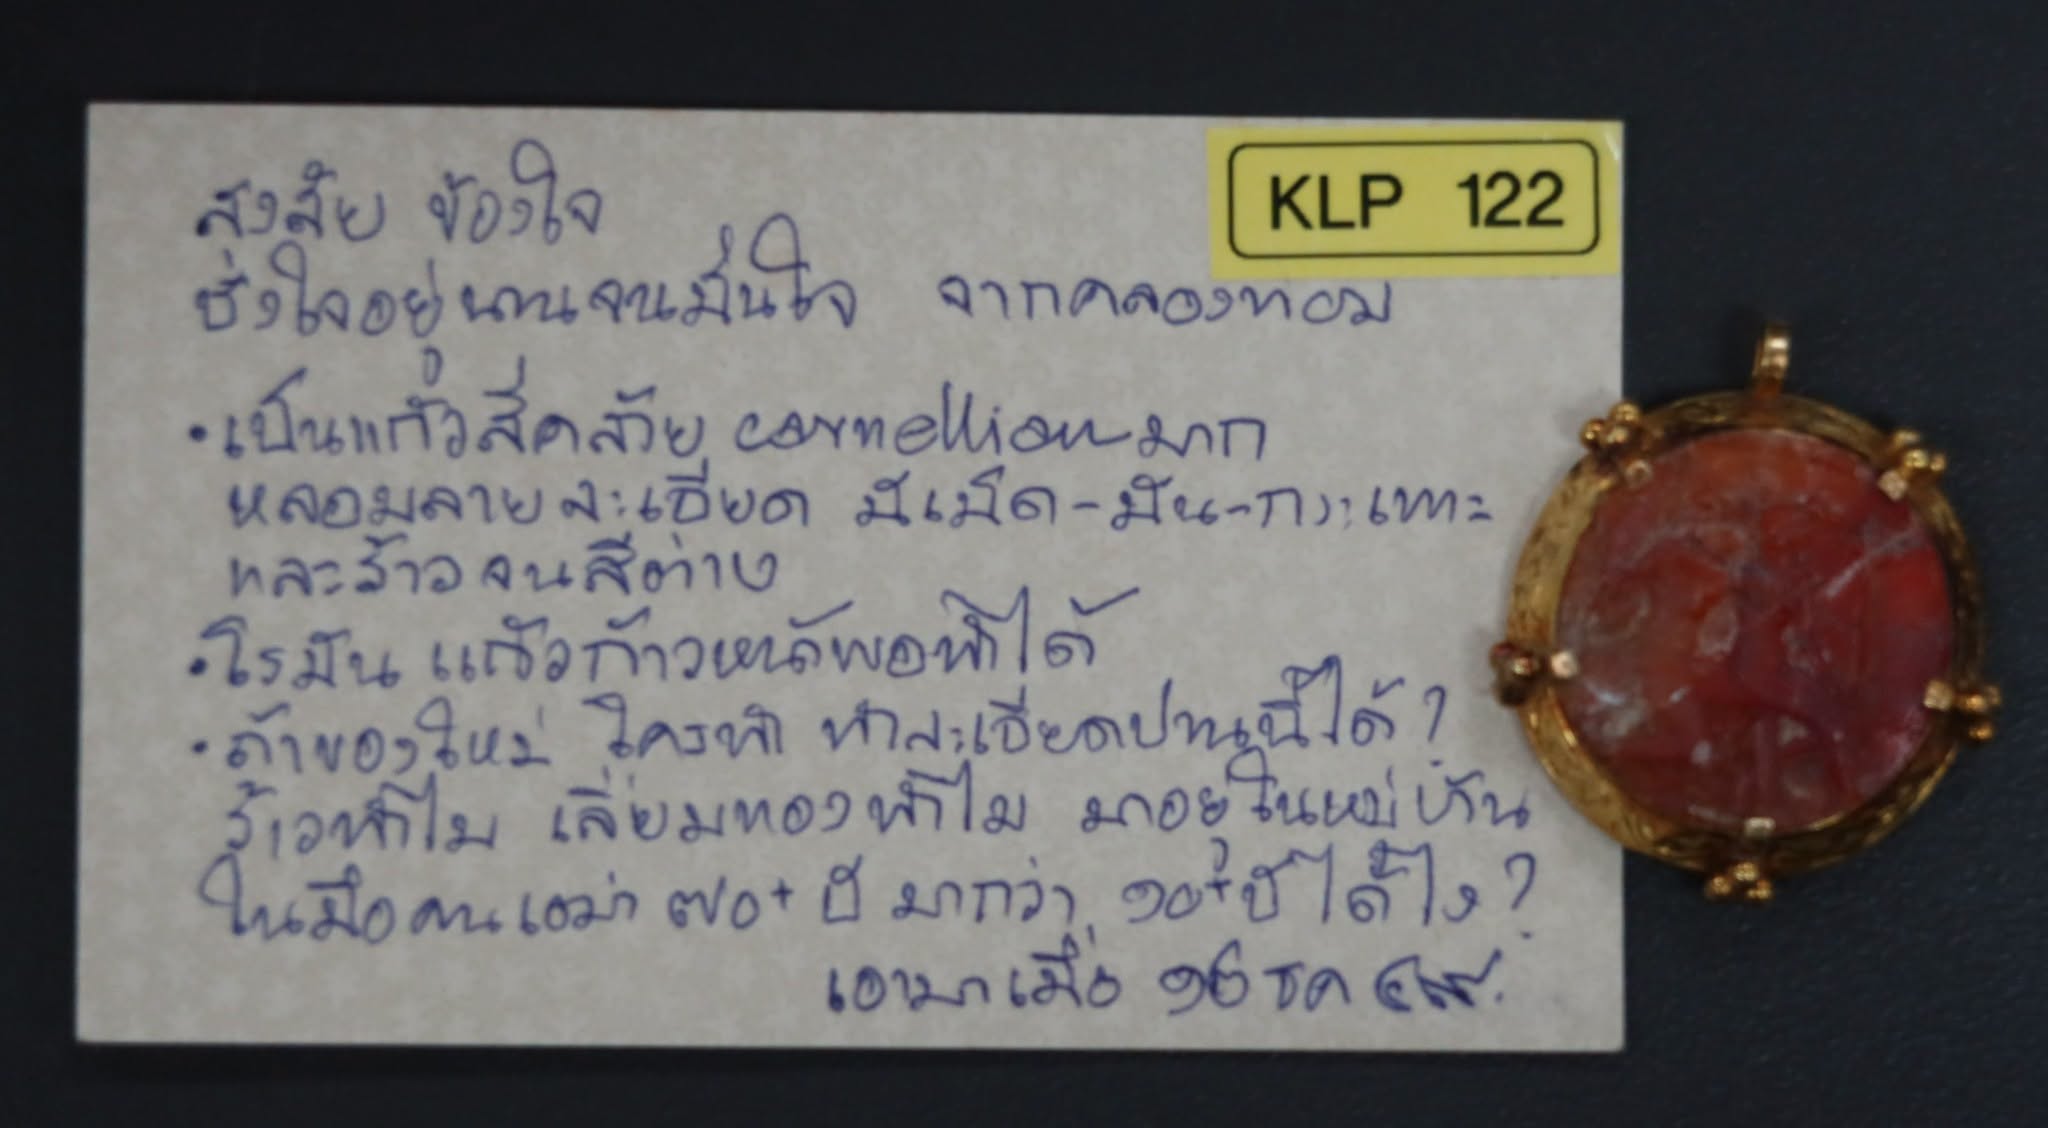 KLP 122
สงสัย ข้องใจ
ชั่งใจอยู่นานจนมั่นใจ จากคลองทอม
• เป็นแก้วสีคล้าย cornellion มาก
หลอมลายละเอียด มีเม็ด-มัน-กะเทาะ
และร้าวจนสีต่าง
• โรมัน แก้วก้าวหน้าพอทำได้
• ถ้าของใหม่ ใครทำ ทำละเอียดปานนี้ได้?
ร้าวทำไม เลี่ยมทองทำไม มาอยู่ในหมู่บ้าน
ในมือคนเฒ่า ๗๐+ ปี มากว่า ๑๐+ ปี ได้ไง?
เอามาเมื่อ ๑๖ ธค ๔๙.